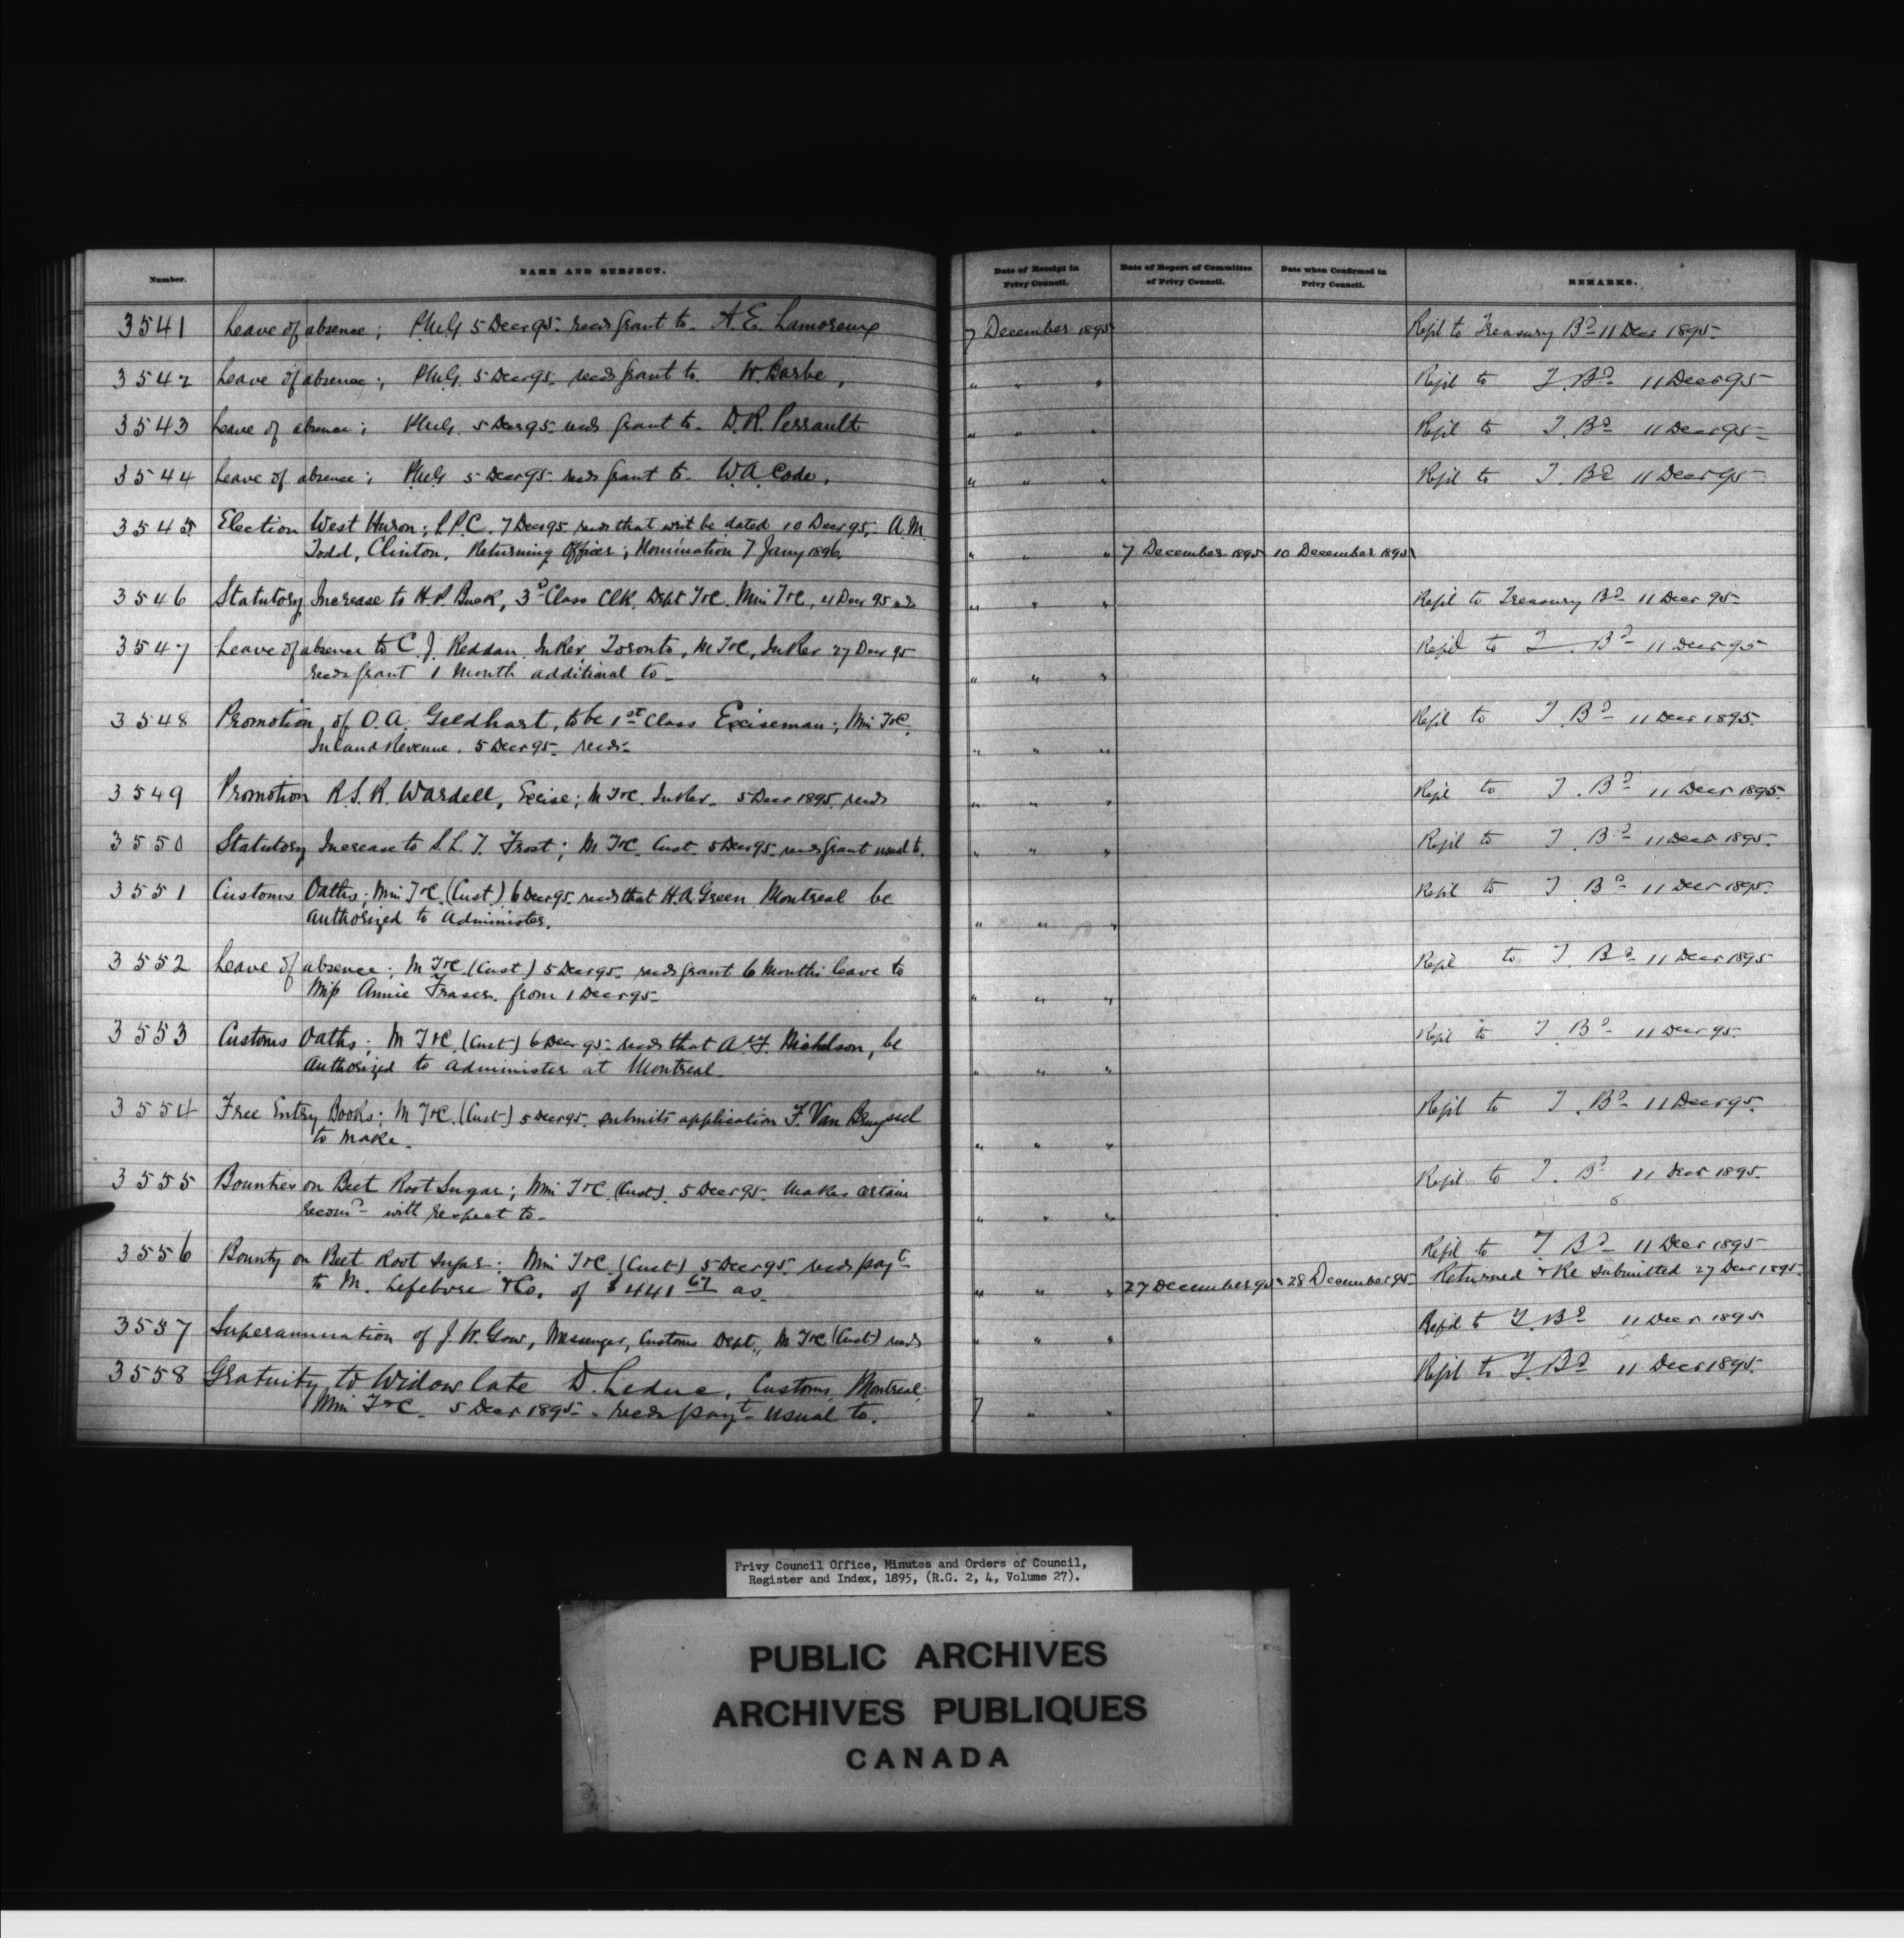 Number. NAME AND SUBJECT. Date of Receipt in Privy Council. Date of Report of Committee of Privy Council. Date when Confirmed in Privy Council. REMARKS.
3541 Leave of absence; PMG 5 Decr 95 recds grant to A. E. Lamoreux 7 December 1895 Refd to Treasury Bd 11 Decr 1895
3542 Leave of absence; PMG. 5 Decr 95 recds grant to W. Barbe, " " " Refd to T. Bd 11 Decr 95
3543 Leave of absence; PMG. 5 Decr 95 recds grant to D. R. Perrault " " " Refd to T. Bd 11 Decr 95
3544 Leave of absence; PMG 5 Decr 95 recds grant to W. A. Code, " " " Refd to T. Bd 11 Decr 95
3545 Election West Huron; P.P.C. 7 Decr 95 recds that writ be dated 10 Decr 95; A. M.
Todd, Clinton, Returning Officer; Nomination 7 Jany 1896. " " " 7 December 1895 10 December 1895
3546 Statutory Increase to H. P. Buck, 3d Class Clk. Dept T&C. Min T&C, 4 Decr 95 Refd to Treasury Bd 11 Decr 95
3547 Leave of absence to C. J. Reddan InRev, Toronto, M T&C, InRev 27 Decr 95 Refd to T. Bd 11 Decr 95
recds grant 1 month additional to " " "
3548 Promotion, of O. A. Geldhart, to be 1st Class Exciseman; Min T&C. Refd to T. Bd 11 Decr 1895.
Inland Revenue. 5 Decr 95 recds " " "
3549 Promotion R. S. R. Wardell, Excise; M T&C. InRev. 5 Decr 1895 recds " " " Refd to T. Bd 11 Decr 1895.
3550 Statutory Increase to S. L. T. Frost; M T&C. Cust. 5 Decr 95 recds grant usual to. " " " Refd to T. Bd 11 Decr 1895.
3551 Customs Oaths; Min T&C. (Cust.) 6 Decr 95 recds that H. A Green Montreal be Refd to T. Bd 11 Decr 1895.
authorized to administer. " " "
3552 Leave of absence; M T&C (Cust) 5 Decr 95 recds grant 6 Months leave to Refd to T. Bd 11 Decr 1895
Miss Annie Fraser. from 1 Decr 95 " " "
3553 Customs Oaths; M T&C. (Cust) 6 Decr 95 recds that A. F. Nicholson, be Refd to T. Bd 11 Decr 95.
authorized to administer at Montreal. " " "
3554 Free Entry Books; M T&C. (Cust) 5 Decr 95. submits application F. Van Bruyssel Refd to T. Bd 11 Decr 95.
to make. " " "
3555 Bounties on Beet Root Sugar; Min T&C. (Cust). 5 Decr 95. Makes certain Refd to T. Bd 11 Decr 1895.
recomd with respect to. " " "
3556 Bounty on Beet Root Sugar: Min T&C. (Cust) 5 Decr 95. recds payt Refd to T. Bd 11 Decr 1895
to M. Lefebvre & Co. of $441 67 as. " " " 27 December 95 28 December 95 Returned & Re submitted 27 Decr 1895.
3557 Superannuation of J. W. Gow, Messenger, Customs Dept., M T&C (Cust) recds " " " Refd to T. Bd 11 Decr 1895
3558 Gratuity to Widow late D. Leduc, Customs, Montreal. Refd to T. Bd 11 Decr 1895.
Min T&C. 5 Decr 1895 recds payt usual to. 7 " "
Privy Council Office, Minutes and Orders of Council,
Register and Index, 1895, (R.G. 2, 4, Volume 27).
PUBLIC ARCHIVES
ARCHIVES PUBLIQUES
CANADA